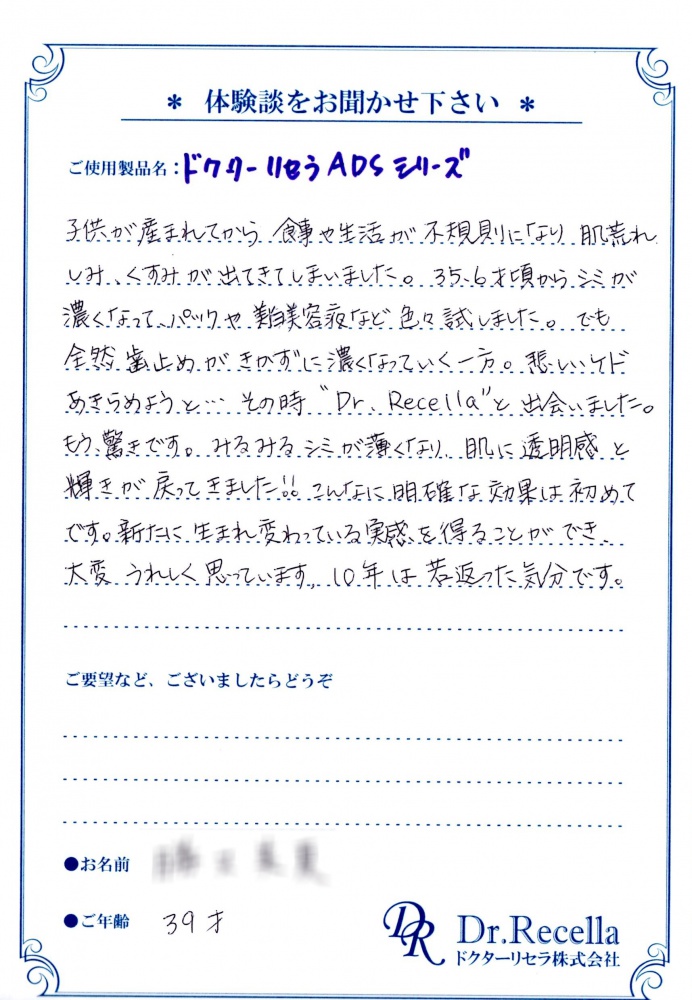 ＊ 体験談をお聞かせ下さい ＊
ご使用製品名：ドクターリセラ ADS シリーズ
子供が産まれてから、食事や生活が不規則になり、肌荒れ
しみ、くすみが出てきてしまいました。35、6才頃からシミが
濃くなって、パックや美容液など色々試しました。でも
全然歯止めがきかずに濃くなっていく一方。悲しいケド
あきらめようと… その時 "Dr. Recella"と出会いました。
もう、驚きです。みるみるシミが薄くなり、肌に透明感と
輝きが戻ってきました!! こんなに明確な効果は初めて
です。新たに生まれ変わっている実感を得ることができ、
大変うれしく思っています。10年は若返った気分です。
ご要望など、ございましたらどうぞ
●お名前
●ご年齢 39才
DR Dr.Recella
ドクターリセラ株式会社